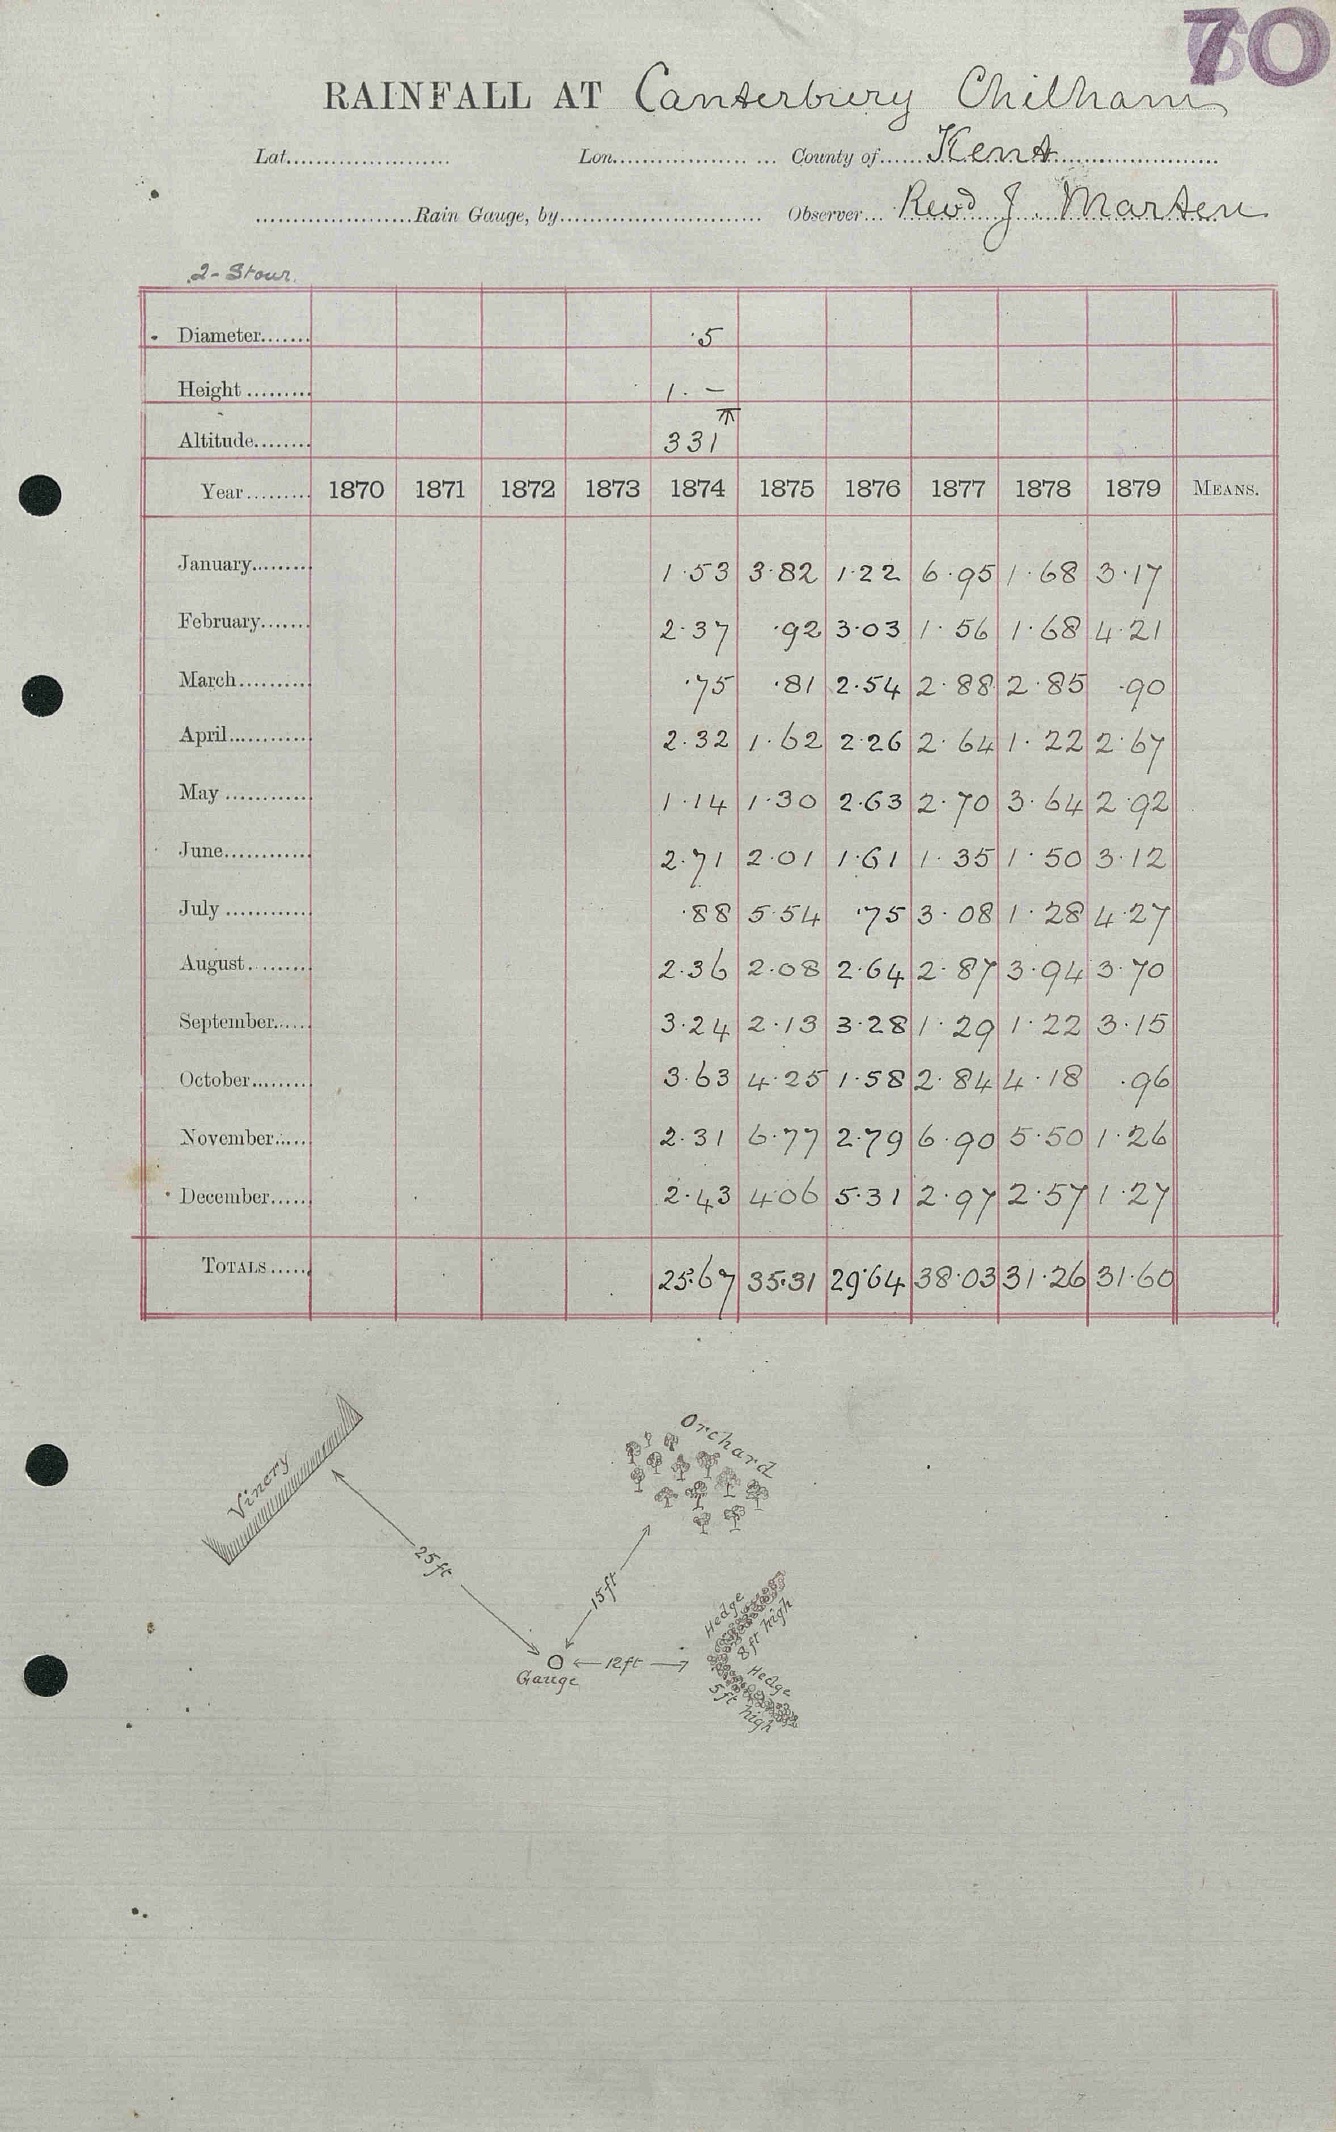 70
RAINFALL AT Canterbury Chilham
Lat...................... Lon.................. ... County of......Kent......................
.....................Rain Gauge, by........................... Observer... Revd J. Marten
2 - Stour.
Diameter....... ·5
Height ......... 1. -
Altitude........ 331
Year......... 1870 1871 1872 1873 1874 1875 1876 1877 1878 1879 MEANS.
January......... 1·53 3·82 1·22 6·95 1·68 3·17
February....... 2·37 ·92 3·03 1·56 1·68 4·21
March.......... ·75 ·81 2·54 2·88 2·85 ·90
April............ 2·32 1·62 2·26 2·64 1·22 2·67
May ............ 1·14 1·30 2·63 2·70 3·64 2·92
June............ 2·71 2·01 1·61 1·35 1·50 3·12
July ............ ·88 5·54 ·75 3·08 1·28 4·27
August......... 2·36 2·08 2·64 2·87 3·94 3·70
September...... 3·24 2·13 3·28 1·29 1·22 3·15
October......... 3·63 4·25 1·58 2·84 4·18 ·96
November...... 2·31 6·77 2·79 6·90 5·50 1·26
December...... 2·43 4·06 5·31 2·97 2·57 1·27
TOTALS...... 25·67 35·31 29·64 38·03 31·26 31·60
Orchard
Vinery
25 ft
15 ft
Hedge
8 ft high
12 ft
Gauge
Hedge
5 ft high